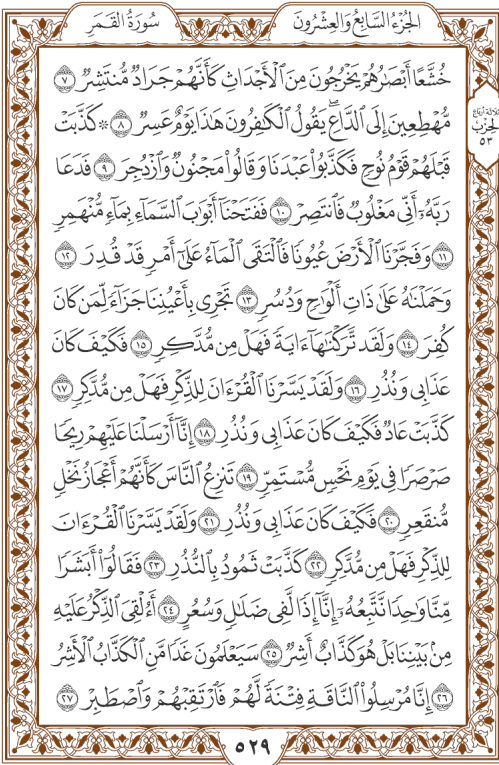 الجُزْءُ السَّابِعُ وَالعِشْرُونَ
سُورَةُ القَمَرِ
خُشَّعًا أَبْصَٰرُهُمْ يَخْرُجُونَ مِنَ ٱلْأَجْدَاثِ كَأَنَّهُمْ جَرَادٌ مُّنتَشِرٌ ٧
مُّهْطِعِينَ إِلَى ٱلدَّاعِ ۖ يَقُولُ ٱلْكَٰفِرُونَ هَٰذَا يَوْمٌ عَسِرٌ ٨ ۞ كَذَّبَتْ
قَبْلَهُمْ قَوْمُ نُوحٍ فَكَذَّبُوا۟ عَبْدَنَا وَقَالُوا۟ مَجْنُونٌ وَٱزْدُجِرَ ٩ فَدَعَا
رَبَّهُۥٓ أَنِّى مَغْلُوبٌ فَٱنتَصِرْ ١٠ فَفَتَحْنَآ أَبْوَٰبَ ٱلسَّمَآءِ بِمَآءٍ مُّنْهَمِرٍ
١١ وَفَجَّرْنَا ٱلْأَرْضَ عُيُونًا فَٱلْتَقَى ٱلْمَآءُ عَلَىٰٓ أَمْرٍ قَدْ قُدِرَ ١٢
وَحَمَلْنَٰهُ عَلَىٰ ذَاتِ أَلْوَٰحٍ وَدُسُرٍ ١٣ تَجْرِى بِأَعْيُنِنَا جَزَآءً لِّمَن كَانَ
كُفِرَ ١٤ وَلَقَد تَّرَكْنَٰهَآ ءَايَةً فَهَلْ مِن مُّدَّكِرٍ ١٥ فَكَيْفَ كَانَ
عَذَابِى وَنُذُرِ ١٦ وَلَقَدْ يَسَّرْنَا ٱلْقُرْءَانَ لِلذِّكْرِ فَهَلْ مِن مُّدَّكِرٍ ١٧
كَذَّبَتْ عَادٌ فَكَيْفَ كَانَ عَذَابِى وَنُذُرِ ١٨ إِنَّآ أَرْسَلْنَا عَلَيْهِمْ رِيحًا
صَرْصَرًا فِى يَوْمِ نَحْسٍ مُّسْتَمِرٍّ ١٩ تَنزِعُ ٱلنَّاسَ كَأَنَّهُمْ أَعْجَازُ نَخْلٍ
مُّنقَعِرٍ ٢٠ فَكَيْفَ كَانَ عَذَابِى وَنُذُرِ ٢١ وَلَقَدْ يَسَّرْنَا ٱلْقُرْءَانَ
لِلذِّكْرِ فَهَلْ مِن مُّدَّكِرٍ ٢٢ كَذَّبَتْ ثَمُودُ بِٱلنُّذُرِ ٢٣ فَقَالُوٓا۟ أَبَشَرًا
مِّنَّا وَٰحِدًا نَّتَّبِعُهُۥٓ إِنَّآ إِذًا لَّفِى ضَلَٰلٍ وَسُعُرٍ ٢٤ أَءُلْقِىَ ٱلذِّكْرُ عَلَيْهِ
مِنۢ بَيْنِنَا بَلْ هُوَ كَذَّابٌ أَشِرٌ ٢٥ سَيَعْلَمُونَ غَدًا مَّنِ ٱلْكَذَّابُ ٱلْأَشِرُ
٢٦ إِنَّا مُرْسِلُوا۟ ٱلنَّاقَةِ فِتْنَةً لَّهُمْ فَٱرْتَقِبْهُمْ وَٱصْطَبِرْ ٢٧
ثلاثة أرباع
الحزب
٥٣
٥٢٩